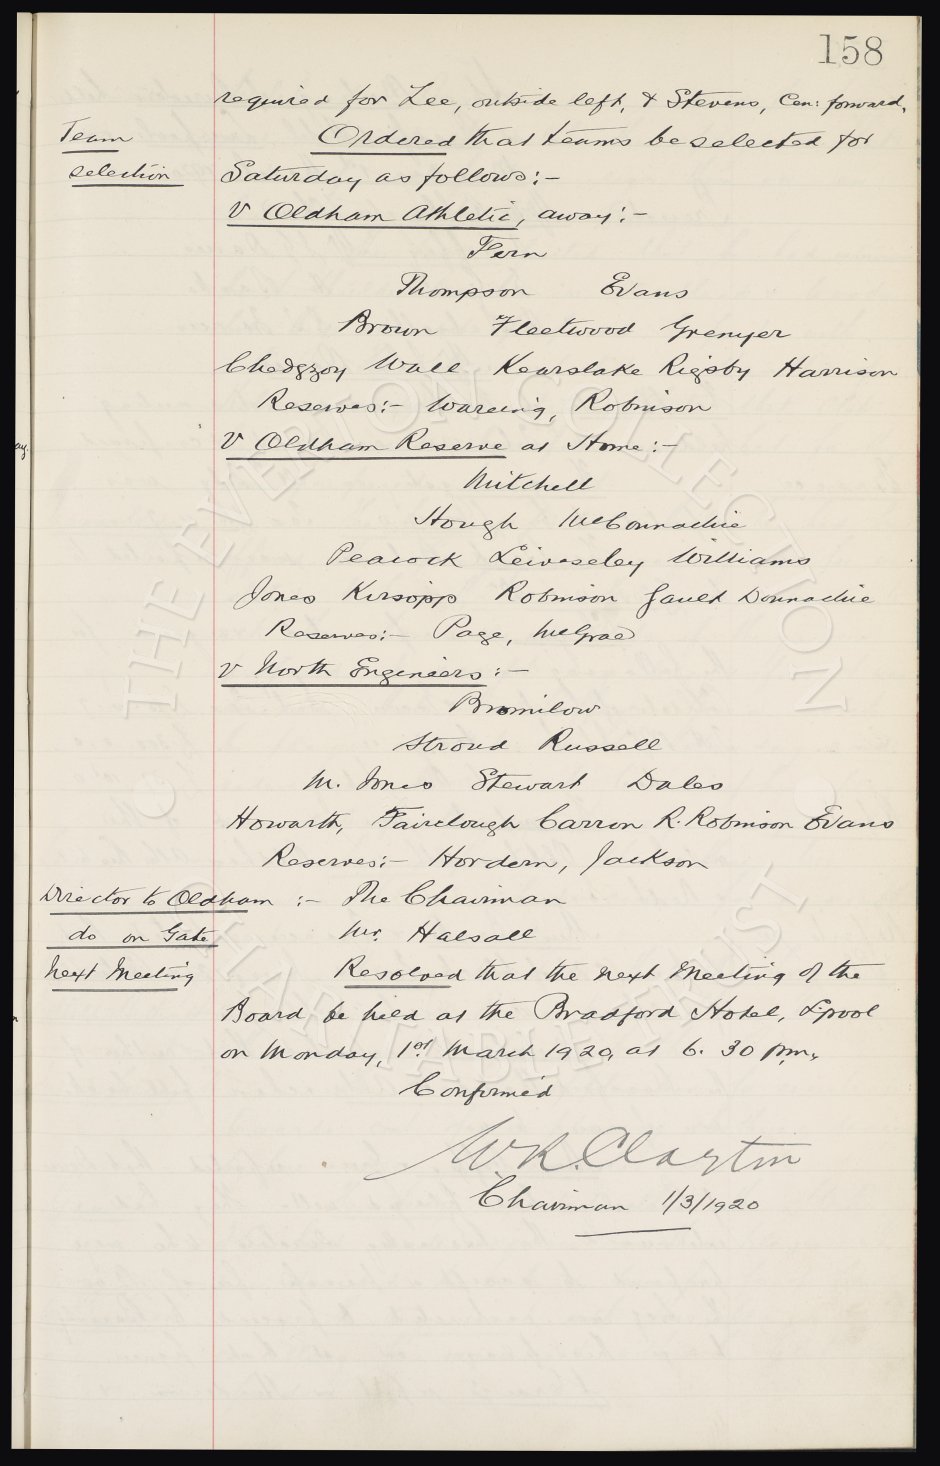 158
required for Lee, outside left, & Stevens, Cen: forward.
Team
Ordered that teams be selected for
selection
Saturday as follows:-
v Oldham Athletic, away:-
Fern
Thompson Evans
Brown Fleetwood Grenyer
Chedgzoy Wall Kearslake Rigsby Harrison
Reserves:- Wareing, Robinson
v Oldham Reserve at Home:-
Mitchell
Hough McConnachie
Peacock Leivesley Williams
Jones Kirsopp Robinson Gault Donnachie
Reserves:- Page, McGrae
v North Engineers:-
Bromilow
Stroud Russell
M. Jones Stewart Dales
Howarth, Fairclough Carron R. Robinson Evans
Reserves:- Hordern, Jackson
Director to Oldham :- The Chairman
do on Gate Mr. Halsall
Next Meeting Resolved that the next Meeting of the
Board be held at the Bradford Hotel, L'pool
on Monday, 1st March 1920, at 6.30 pm.
Confirmed
W.R. Clayton
Chairman 1/3/1920
THE EVERTON COLLECTION
CHARITABLE TRUST